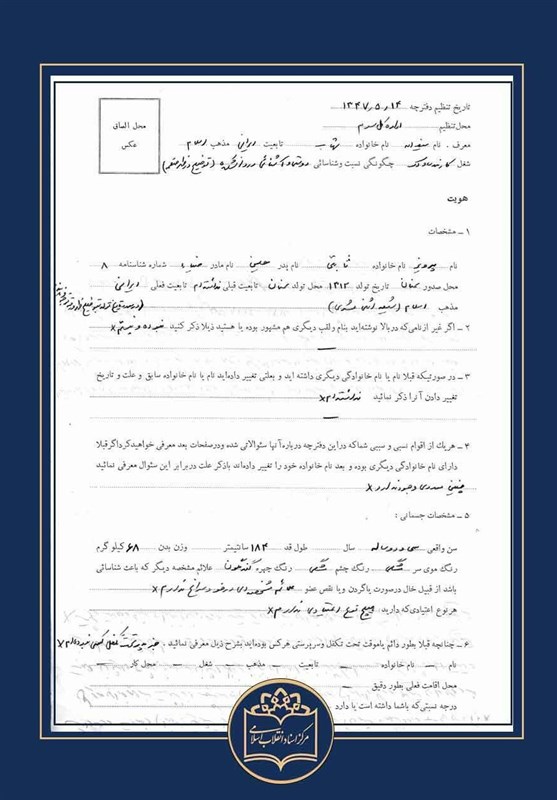 تاریخ تنظیم دفترچه ۱۳۴۷/۵/۱۴
محل تنظیم اداره کل سوم
محل الصاق
عکس
معرف . نام نام خانواده تابعیت ایرانی مذهب اسلام
شغل چگونگی نسبت وشناسائی
هویت
۱ – مشخصات
نام پرویز نام خانواده ثابتی نام پدر حسین نام مادر شماره شناسنامه ۸
محل صدور سمنان تاریخ تولد ۱۳۱۵ محل تولد سمنان تابعیت قبلی نداشته‌ام تابعیت فعلی ایرانی
مذهب اسلام
۲ – اگر غیر از نامی‌که دربالا نوشته‌اید بنام ولقب دیگری هم مشهور بوده یا هستید ذیلا ذکر کنید . نبوده و نیستم x
۳ – در صورتیکه قبلا نام یا نام خانوادگی دیگری داشته اید و بعلتی تغییر داده‌اید نام یا نام خانواده سابق و علت و تاریخ
تغییر دادن آنرا ذکر نمائید نداشته‌ام x
۴ – هریك از اقوام نسبی و سببی شما که دراین دفترچه درباره آنها سئوالاتی شده ودرصفحات بعد معرفی خواهیدکرد اگرقبلا
دارای نام خانوادگی دیگری بوده و بعد نام خانواده خود را تغییر داده‌اند باذکر علت دربرابر این سئوال معرفی نمائید
چنین موردی وجود ندارد x
۵ – مشخصات جسمانی :
سن واقعی سی و دو ساله سال طول قد ۱۸۴ سانتیمتر وزن بدن ۶۸ کیلو گرم
رنگ موی سر مشکی رنگ چشم مشکی رنگ چهره گندمگون علائم مشخصه دیگر که باعث شناسائی
باشد از قبیل خال درصورت یاگردن ویا نقص عضو ندارم x
هرنوع اعتیادی‌که دارید . هیچ نوع اعتیادی ندارم x
۶ – چنانچه قبلا بطور دائم یاموقت تحت تکفل وسرپرستی هرکس بوده‌اید بشرح ذیل معرفی نمائید . تحت تکفل کسی نبوده‌ام x
نام – نام خانواده – تابعیت – مذهب – شغل – محل کار –
محل اقامت فعلی بطور دقیق –
درجه نسبتی‌که باشما داشته است یا دارد
مرکز اسناد انقلاب اسلامی